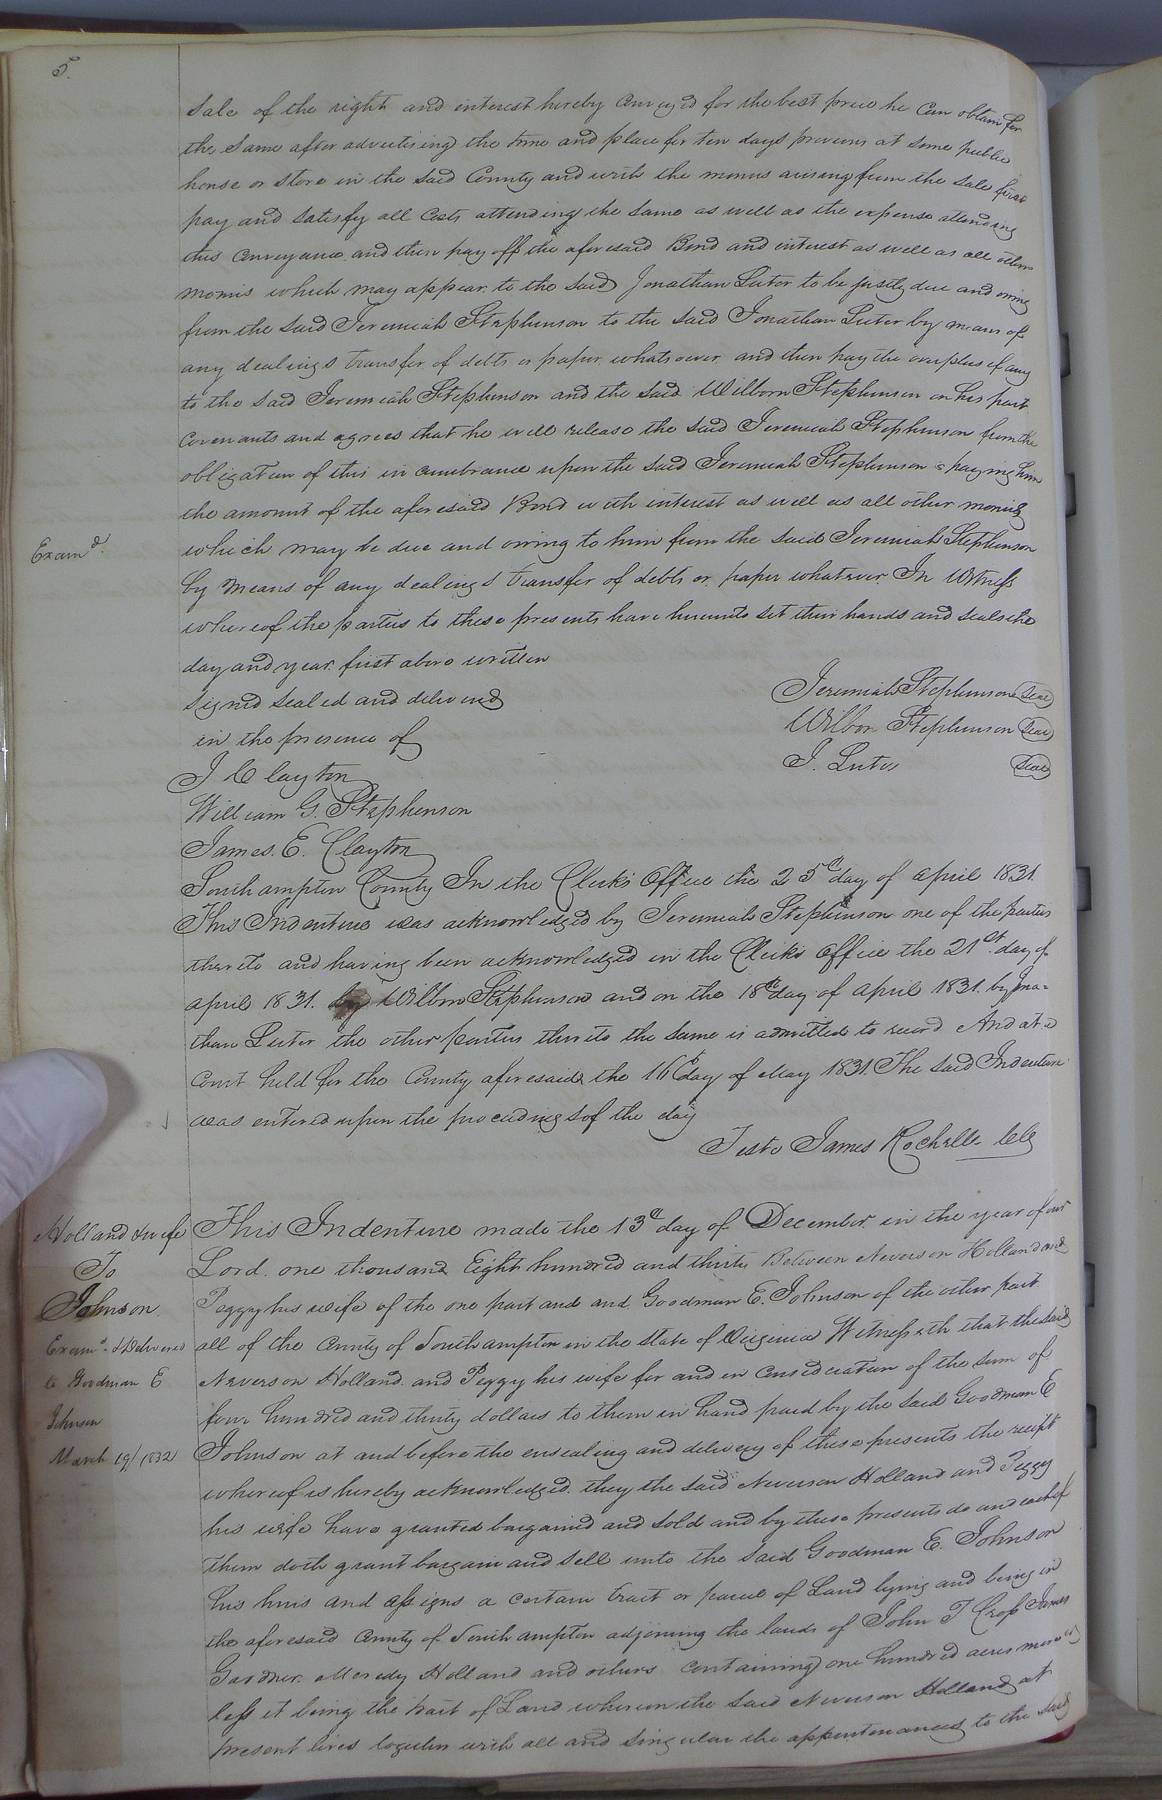 5.
Sale of the right and interest hereby Conveyed for the best price he Can obtain for
the Same after advertising the time and place for ten days previous at some public
house or store in the said County and with the monies arising from the sale first
pay and satisfy all Costs attending the same as well as the expense attending
this Conveyance and then pay off the aforesaid Bond and interest as well as all other
monies which may appear to the said Jonathan Luter to be justly due and owing
from the said Jeremiah Stephenson to the said Jonathan Luter by means of
any dealings transfer of debts or paper whatsoever and then pay the overplus if any
to the said Jeremiah Stephenson and the said Wilborn Stephenson on his part
Covenants and agrees that he will release the said Jeremiah Stephenson from the
obligation of this in cumbrance upon the said Jeremiah Stephenson s paying him
the amount of the aforesaid Bond with interest as well as all other monies
Examd.
which may be due and owing to him from the said Jeremiah Stephenson
by means of any dealings transfer of debts or paper whatever In Witness
whereof the parties to these presents have hereunto set their hands and seals the
day and year first above written
Signed sealed and delivered
in the presence of
Jeremiah Stephenson Seal
Wilbor Stephenson Seal
J. Luter Seal
J Clayton
William G. Stephenson
James. E. Clayton
Southampton County In the Clerk's Office the 25th day of April 1831.
This Indenture was acknowledged by Jeremiah Stephenson one of the parties
thereto and having been acknowledged in the Clerk's office the 21st day of
april 1831. by Wilborn Stephenson and on the 18th day of April 1831. by Jona-
than Luter the other parties thereto the same is admitted to record And at a
Court held for the County aforesaid the 16th day of May 1831. The said Indenture
was entered upon the proceedings of the day
Teste James Rochelle ClC
Holland & wife
To
Johnson
Examd. & Delivered
to Goodman E
Johnson
March 19/1832
This Indenture made the 13th day of December in the year of our
Lord one thousand Eight hundred and thirty Between Neverson Holland and
Peggy his wife of the one part and and Goodman E. Johnson of the other part
all of the County of Southampton in the State of Virginia Witnesseth that the said
Neverson Holland and Peggy his wife for and in Consideration of the sum of
four hundred and thirty dollars to them in hand paid by the said Goodman E
Johnson at and before the ensealing and delivery of these presents the receipt
whereof is hereby acknowledged they the said Neverson Holland and Peggy
his wife have granted bargained and sold and by these presents do and each of
them doth grant bargain and sell unto the said Goodman E. Johnson
his heirs and assigns a certain tract or parcel of Land lying and being in
the aforesaid County of Southampton adjoining the lands of John T Cross James
Gardner Meredy Holland and others containing one hundred acres more or
less it being the tract of Land whereon the said Neverson Holland at
present lives together with all and singular the appurtenances to the said